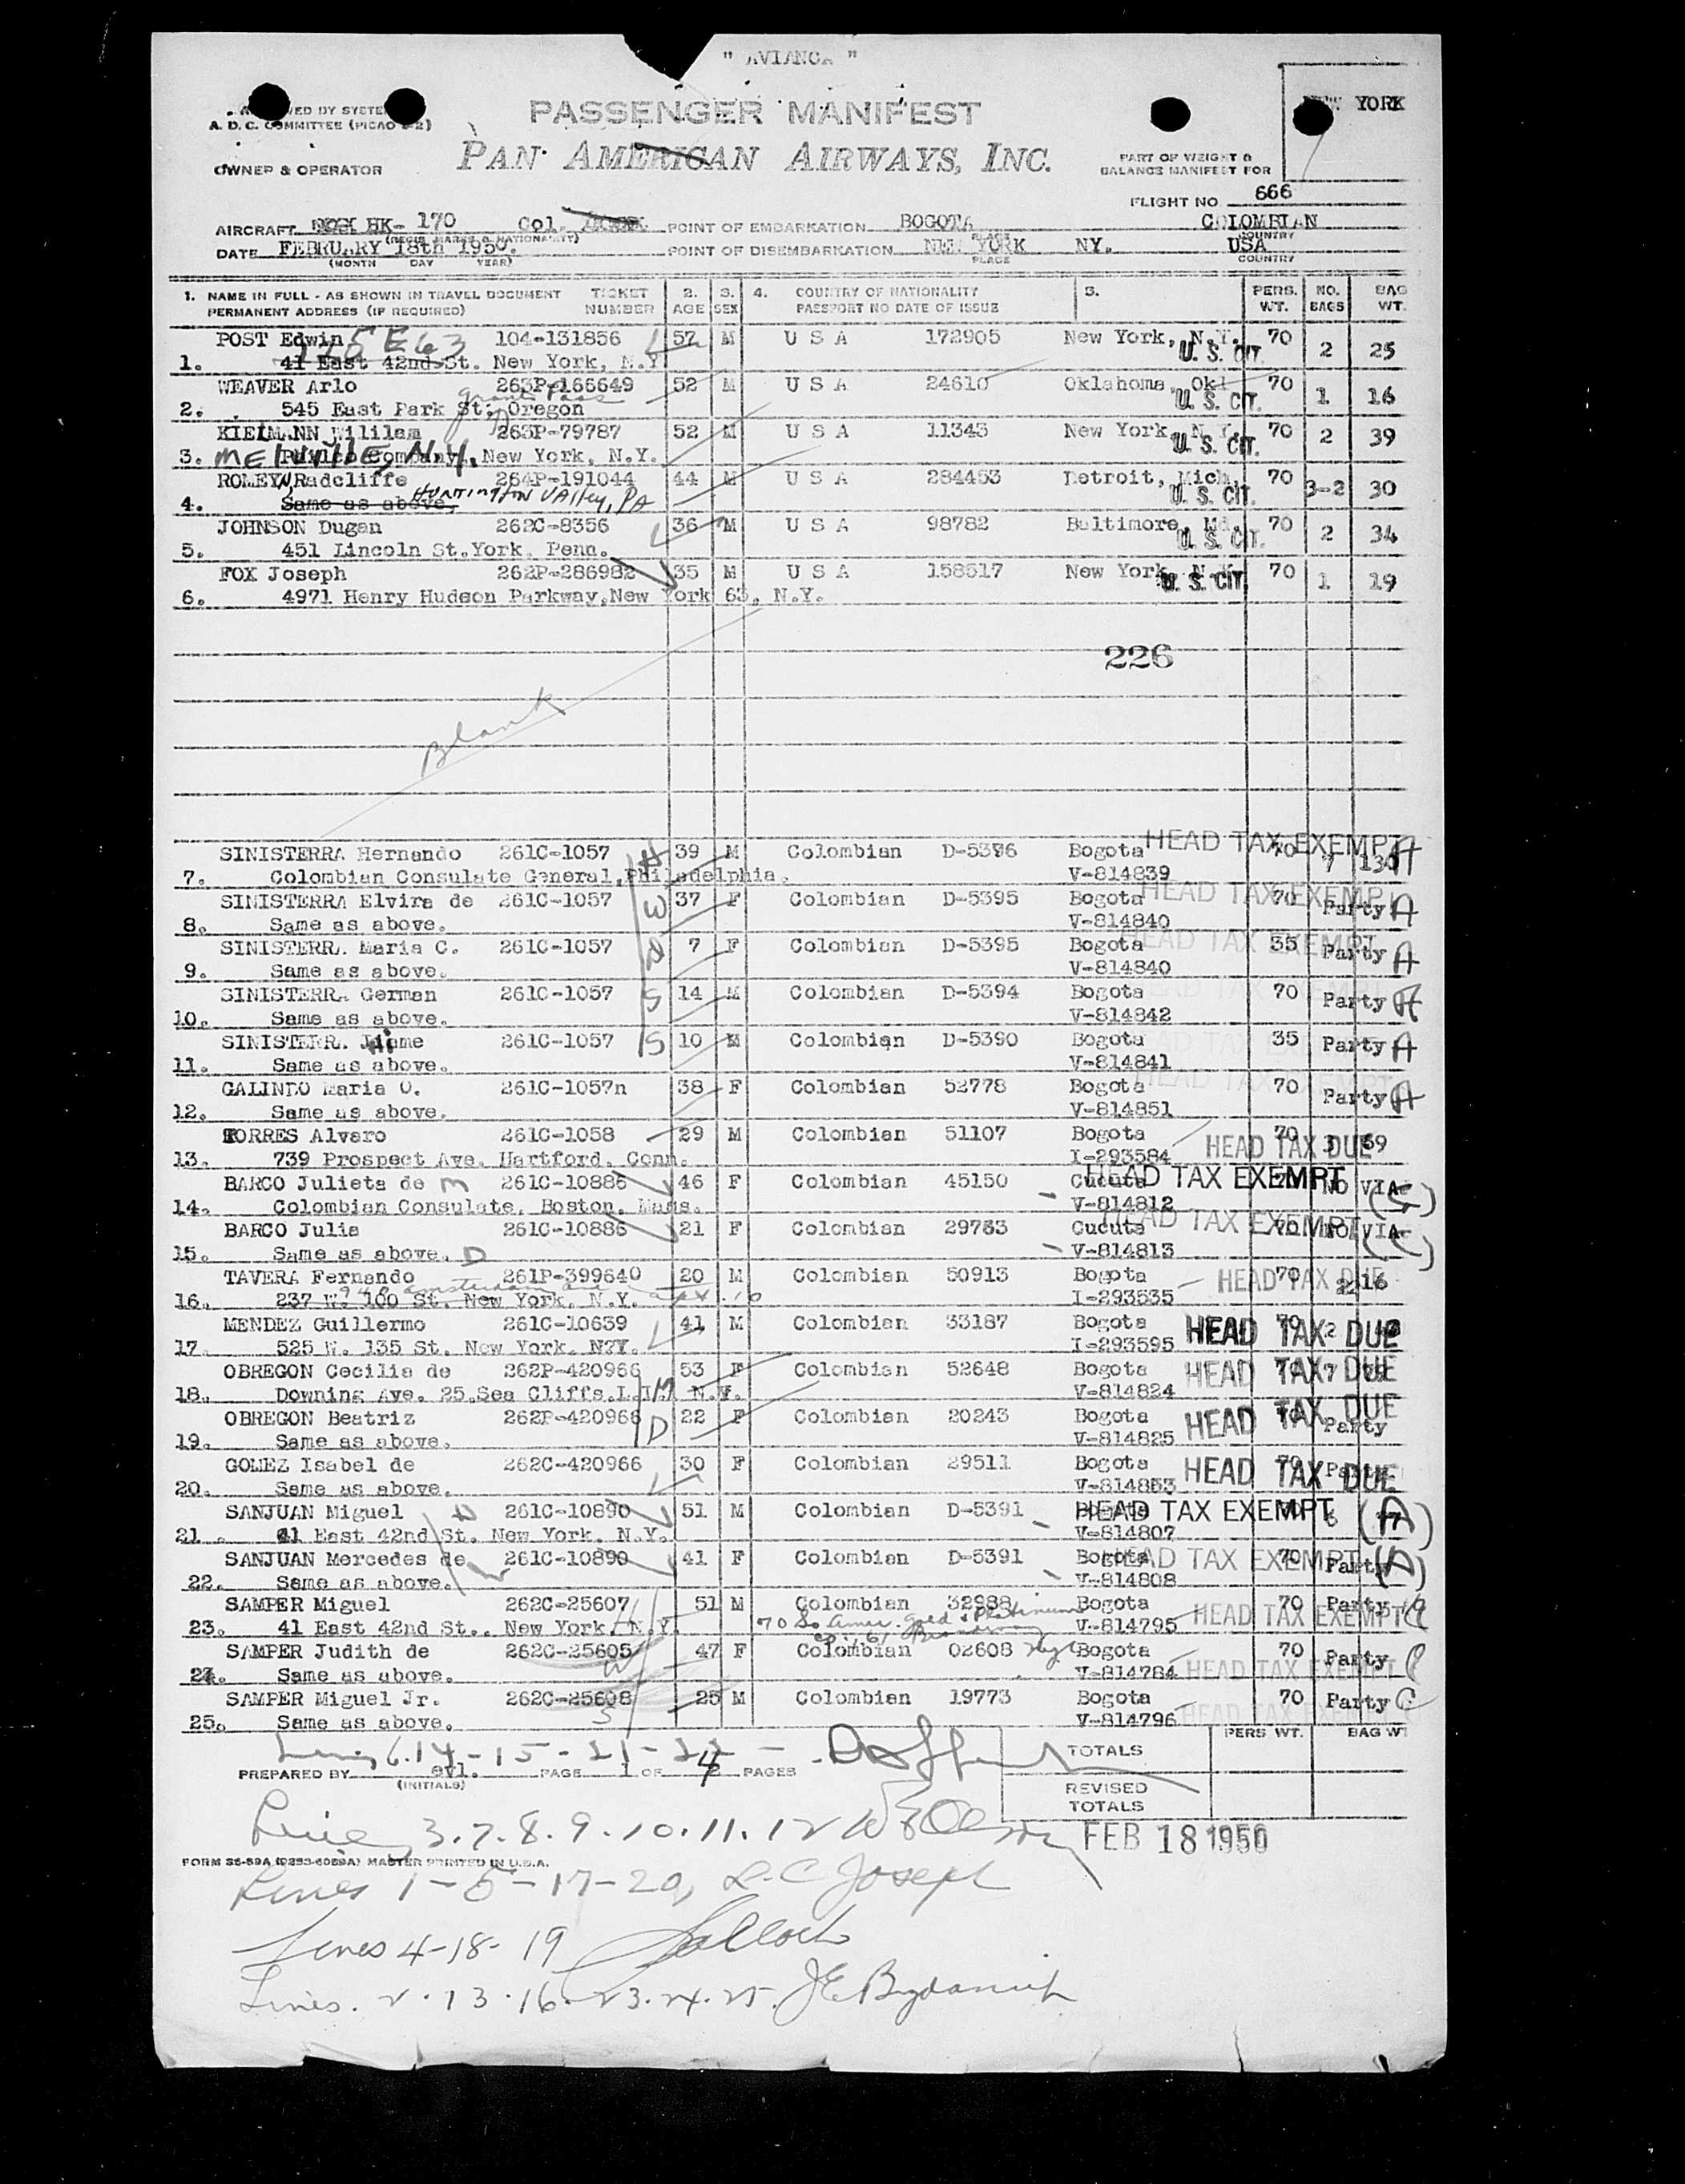 " AVIANCA "
PASSENGER MANIFEST
NEW YORK
A. D. C. COMMITTEE (PICAO
PAN AMERICAN AIRWAYS, INC.
OWNER & OPERATOR
PART OF WEIGHT &
BALANCE MANIFEST FOR
FLIGHT NO. 666
AIRCRAFT HK- 170 Col. POINT OF EMBARKATION BOGOTA COLOMBIAN
(REGIS. MARKS & NATIONALITY) PLACE COUNTRY
DATE FEBRUARY 18th 1950. POINT OF DISEMBARKATION NEW YORK NY. USA
(MONTH DAY YEAR) PLACE COUNTRY
1. NAME IN FULL - AS SHOWN IN TRAVEL DOCUMENT TICKET 2. 3. 4. COUNTRY OF NATIONALITY 5. PERS. NO. BAG
PERMANENT ADDRESS (IF REQUIRED) NUMBER AGE SEX PASSPORT NO DATE OF ISSUE WT. BAGS WT.
POST Edwin 104-131856 57 M U S A 172905 New York, N.Y. 70 2 25
1. 41 East 42nd St. New York, N.Y U. S. CIT.
WEAVER Arlo 263P-166649 52 M U S A 24610 Oklahoma, Okl 70 1 16
Grants Pass
2. 545 East Park St. Oregon U. S. CIT.
KIELMANN Wililam 263P-79787 52 M U S A 11343 New York, N.Y. 70 2 39
3. MELVILLE, N.Y. Philco Company, New York, N.Y. U. S. CIT.
ROLEYN Radcliffe 264P-191044 44 M U S A 284453 Detroit, Mich. 70 3-2 30
4. Same as above, HUNTINGTON VAlley, PA U. S. CIT.
JOHNSON Dugan 262C-8356 36 M U S A 98782 Baltimore, Md. 70 2 34
5. 451 Lincoln St.York, Penn. U. S. CIT.
FOX Joseph 262P-286982 35 M U S A 158517 New York, N.Y. 70 1 19
6. 4971 Henry Hudson Parkway,New York 63, N.Y. U. S. CIT.
226
Blank
SINISTERRA Hernando 261C-1057 39 M Colombian D-5396 Bogota HEAD TAX EXEMPT 70 7 130 A
7. Colombian Consulate General,Philadelphia. V-814839
SINISTERRA Elvira de 261C-1057 37 F Colombian D-5395 Bogota HEAD TAX EXEMPT 70 Party A
8. Same as above. V-814840
SINISTERRA Maria C. 261C-1057 7 F Colombian D-5395 Bogota HEAD TAX EXEMPT 35 Party A
9. Same as above. V-814840
SINISTERRA German 261C-1057 14 M Colombian D-5394 Bogota HEAD TAX EXEMPT 70 Party A
10. Same as above. V-814842
SINISTERRA Jaime 261C-1057 10 M Colombian D-5390 Bogota HEAD TAX 35 Party A
11. Same as above. V-814841
GALINDO Maria O. 261C-1057n 38 F Colombian 52778 Bogota HEAD TAX EXEMPT 70 Party A
12. Same as above. V-814851
TORRES Alvaro 261C-1058 29 M Colombian 51107 Bogota HEAD TAX DUE 70 3 69
13. 739 Prospect Ave. Hartford, Conn. I-293584
BARCO Julieta de M 261C-10886 46 F Colombian 45150 Cucuta HEAD TAX EXEMPT NO VIA
14. Colombian Consulate, Boston, Mass. V-814812
BARCO Julia 261C-10886 21 F Colombian 29763 Cucuta HEAD TAX EXEMPT 70 NO VIA
15. Same as above. D V-814813
TAVERA Fernando 261P-399640 20 M Colombian 50913 Bogota HEAD TAX DUE 70 16
948 Amsterdam Ave
16. 237 W. 100 St. New York, N.Y. I-293535
MENDEZ Guillermo 261C-10639 41 M Colombian 33187 Bogota HEAD TAX DUE 70 2
17. 525 W. 135 St. New York, N?Y. I-293595
OBREGON Cecilia de 262P-420966 53 F Colombian 52648 Bogota HEAD TAX DUE 70 7
18. Downing Ave. 25,Sea Cliffs,L.I. N.Y. V-814824
OBREGON Beatriz 262P-420968 22 F Colombian 20243 Bogota HEAD TAX DUE 70 Party
19. Same as above. D V-814825
GOMEZ Isabel de 262C-420966 30 F Colombian 29511 Bogota HEAD TAX DUE 70 Party
20. Same as above. V-814853
SANJUAN Miguel 261C-10890 51 M Colombian D-5391 HEAD TAX EXEMPT (A)
21. 41 East 42nd St. New York, N.Y. V-814807
SANJUAN Mercedes de 261C-10890 41 F Colombian D-5391 Bogota HEAD TAX EXEMPT 70 Party (A)
22. Same as above. V-814808
SAMPER Miguel 262C-25607 51 M Colombian 32988 Bogota 70 Party
23. 41 East 42nd St., New York, N.Y. % So Amer. Gold & Platinum V-814795 HEAD TAX EXEMPT
61 Broadway
SAMPER Judith de 262C-25605 47 F Colombian 02608 NYC Bogota 70 Party
24. Same as above. V-814784 HEAD TAX EXEMPT
SAMPER Miguel Jr. 262C-25608 25 M Colombian 19773 Bogota 70 Party
25. Same as above. V-814796 HEAD TAX EXEMPT
PERS WT. BAG WT
Lines 6.14-15-21-22 - TOTALS
PREPARED BY evl. PAGE 1 OF 4 PAGES
(INITIALS)
REVISED
TOTALS
Lines 3.7.8.9.10.11.12
FEB 18 1950
MASTER PRINTED IN U.S.A.
Lines 1-5-17-20, L.C Joseph
Lines 4-18-19
Lines. 2.13.16.23.24.25.